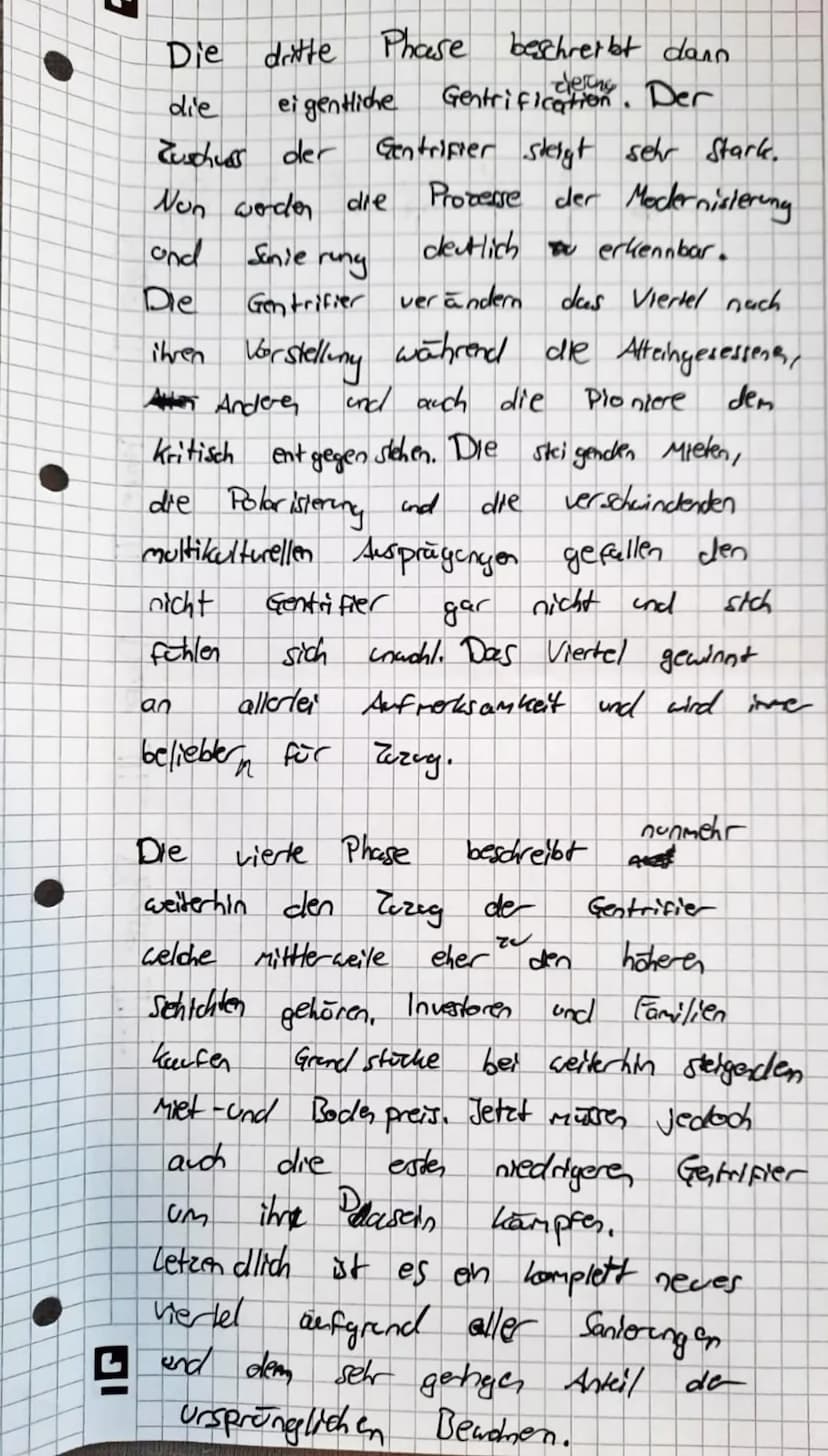 Die dritte Phase beschreibt dann
die eigentliche Gentrification. Der
Zuschuss der Gentrifier steigt sehr Stark.
Nun werden die Prozesse der Modernisierung
und Sanierung deutlich erkennbar.
Die Gentrifier verändern das Viertel nach
ihren Vorstellung während die Alteingesessenen,
Anderen und auch die Pioniere dem
kritisch entgegen stehen. Die steigenden Mieten,
die Polarisierung und die verschwindenden
multikulturellen Ausprägungen gefallen den
nicht Gentrifier gar nicht und sich
fühlen sich unwohl. Das Viertel gewinnt
an allerlei Aufmerksamkeit und wird immer
beliebter für Zuzug.
Die vierte Phase beschreibt nunmehr
weiterhin den Zuzug der Gentrifier
welche mittlerweile eher zu den höheren
Schichten gehören. Investoren und Familien
kaufen Grundstücke bei weiterhin steigenden
Miet-und Bodenpreis. Jetzt müssen jedoch
auch die ersten niedrigeren Gentrifier
um ihr Dasein kämpfen.
Letzendlich ist es ein komplett neues
Viertel aufgrund aller Sanierungen
und dem sehr geringen Anteil der
ursprünglichen Bewohnen.